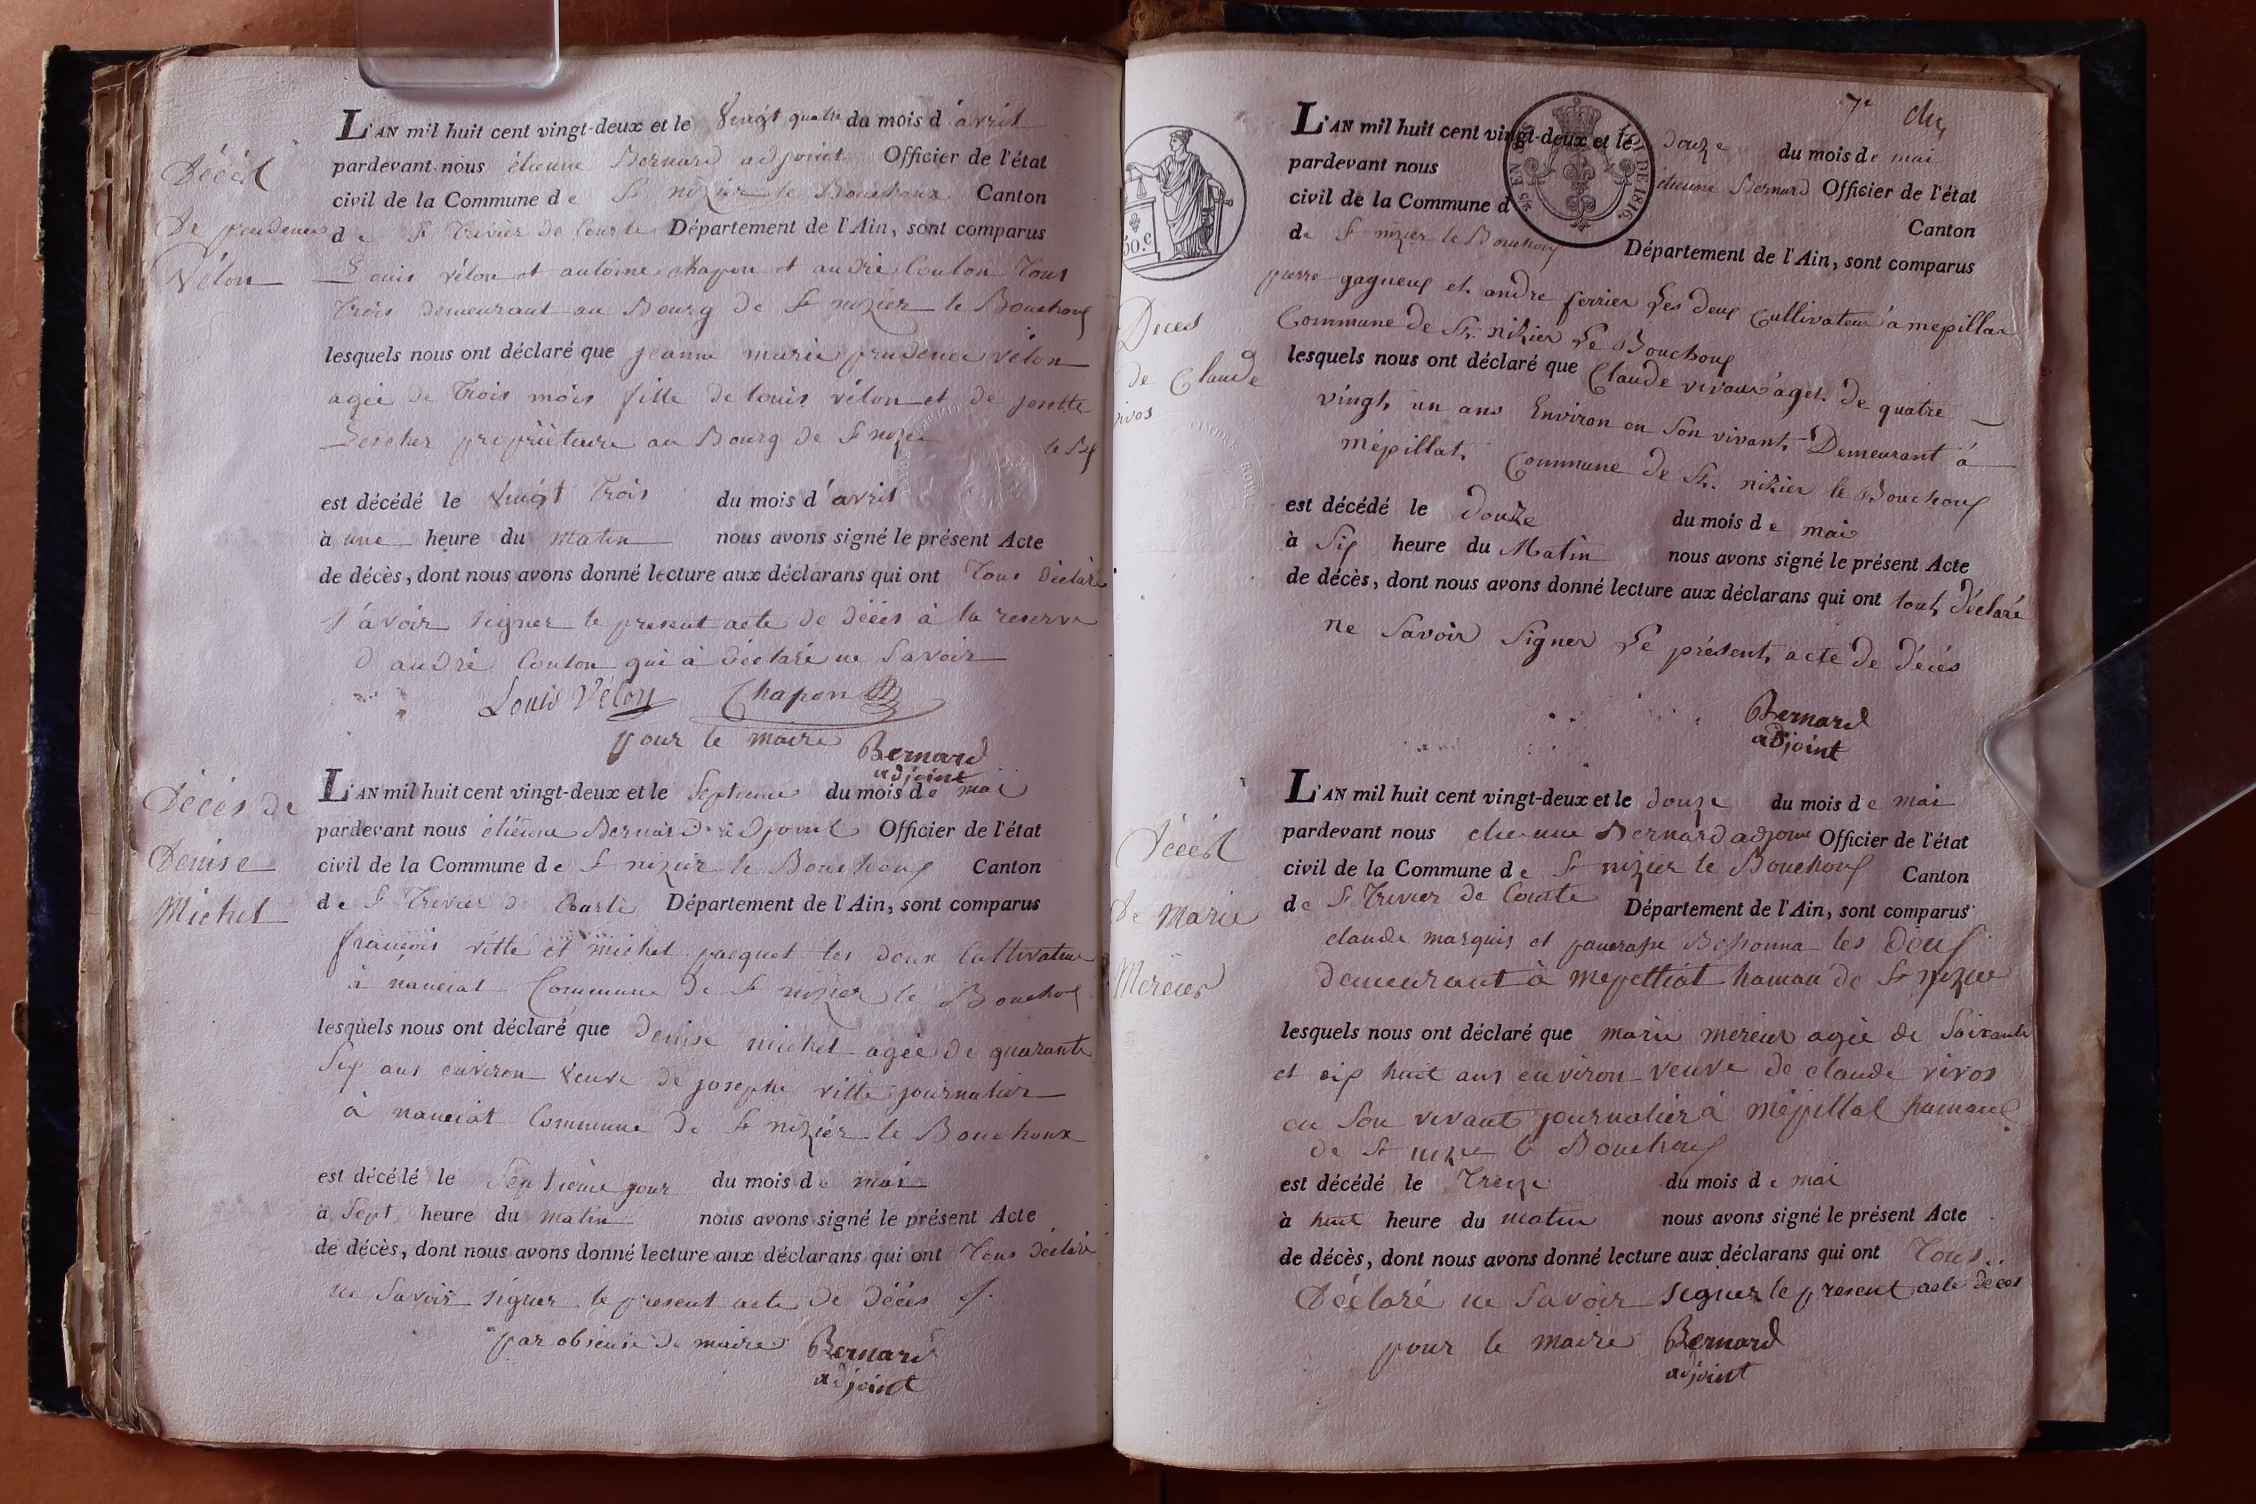 Décès
de prudence
Vélon
L'AN mil huit cent vingt-deux et le vingt quatre du mois d'avril
pardevant nous étienne Bernard adjoint Officier de l'état
civil de la Commune de St nizier le Bouchoux Canton
de St Trivier de Courte Département de l'Ain, sont comparus
Louis vélon et antoine chapon et andré Coulon Tous
Trois demeurant au Bourg de St nizier le Bouchoux
lesquels nous ont déclaré que jeanne marie prudence vélon
agée de Trois mois fille de louis vélon et de josette
propriétaire au Bourg de St nizier le Bx
est décédé le vingt Trois du mois d'avril
à une heure du matin nous avons signé le présent Acte
de décès, dont nous avons donné lecture aux déclarans qui ont Tous déclaré
savoir signer le present acte de décès à la reserve
d'andré Coulon qui à déclaré ne savoir
Louis Vélon Chapon
pour le maire Bernard
adjoint
Décès de
Denise
Michel
L'AN mil huit cent vingt-deux et le Septieme du mois de mai
pardevant nous étienne Bernard adjoint Officier de l'état
civil de la Commune de St nizier le Bouchoux Canton
de St Trivier de Courte Département de l'Ain, sont comparus
françois ville et michel pacquet les deux Cultivateur
à nanciat Commune de St nizier le Bouchoux
lesquels nous ont déclaré que denise michel agée de quarante
Six ans environ veuve de joseph ville journalier
à nanciat Commune de St nizier le Bouchoux
est décédé le Septième jour du mois de mai
à Sept heure du matin nous avons signé le présent Acte
de décès, dont nous avons donné lecture aux déclarans qui ont Tous déclaré
ne savoir signer le present acte de décès
par absence de maire Bernard
adjoint
7e
50.c
EN SUS
LOI DE 1816.
Deces
de Claude
vivos
L'AN mil huit cent vingt-deux et le douze du mois de mai
pardevant nous étienne Bernard Officier de l'état
civil de la Commune d Canton
de St nizier le Bouchoux Département de l'Ain, sont comparus
pierre gagneux et andre ferrier Les deux Cultivateur à mepillat
Commune de St. nizier Le Bouchoux
lesquels nous ont déclaré que Claude agé de quatre
vingt un ans Environ en Son vivant Demeurant à
mépillat Commune de St. nizier le Bouchoux
est décédé le douze du mois de mai
à Six heure du Matin nous avons signé le présent Acte
de décès, dont nous avons donné lecture aux déclarans qui ont tout déclaré
ne Savoir Signer Le présent acte de décés
Bernard
adjoint
Décès
de Marie
Mereus
L'AN mil huit cent vingt-deux et le douze du mois de mai
pardevant nous etienne Bernard adjoint Officier de l'état
civil de la Commune de St nizier le Bouchoux Canton
de St Trivier de Courte Département de l'Ain, sont comparus
claude marquis et pancrasse les deux
demeurant à mepelliat hamau de St nizier
lesquels nous ont déclaré que marie agée de Soixante
et six huit ans environ veuve de claude vivos
en Son vivant journalier à mépillat hamau
de St nizier le Bouchoux
est décédé le Treize du mois de mai
à huit heure du matin nous avons signé le présent Acte
de décès, dont nous avons donné lecture aux déclarans qui ont Tous
Déclaré ne Savoir signer le present acte deces
pour le maire Bernard
adjoint